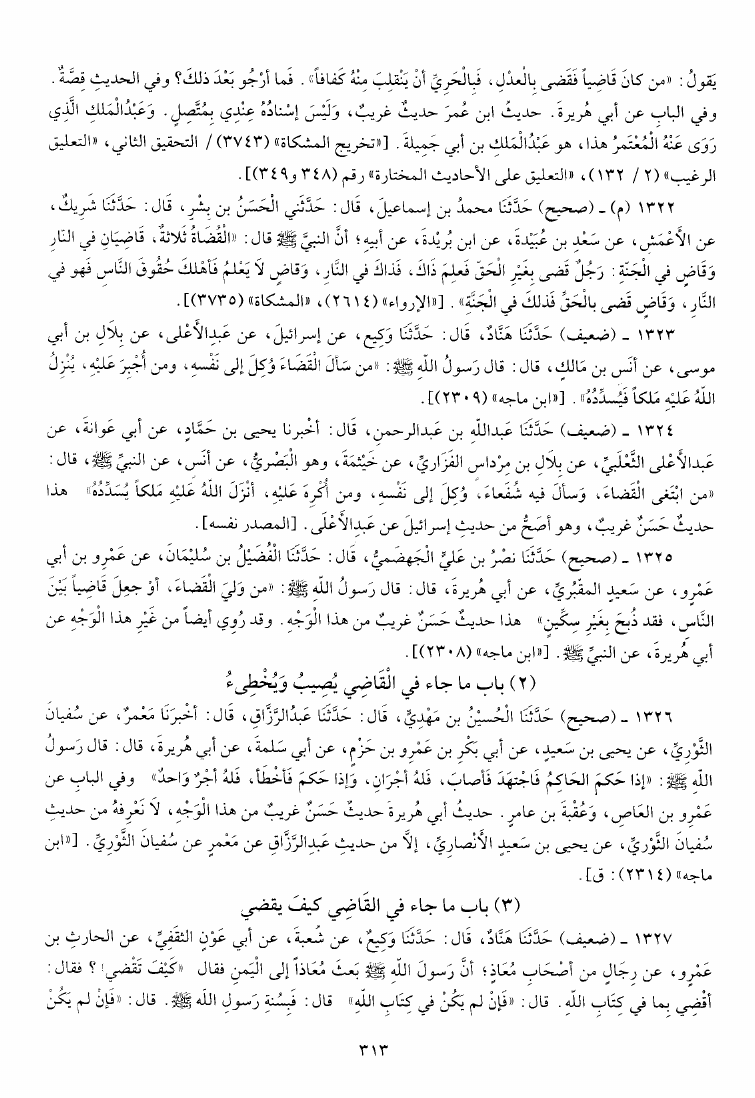 يَقولُ: «من كانَ قَاضِياً فَقَضى بِالْعدْلِ، فَبِالْحَرِيِّ أنْ يَنْقلِبَ مِنْهُ كَفافاً». فَما أرْجُو بَعْدَ ذلكَ؟ وفي الحديثِ قِصَّةٌ.
وفي البابِ عن أبي هُريرةَ. حديثُ ابن عُمرَ حديثٌ غريبٌ، وَلَيْسَ إسْنادُهُ عِنْدِي بِمُتَّصِلٍ. وَعَبْدُالْمَلكِ الَّذِي
رَوَى عَنْهُ الْمُعْتَمرُ هذا، هو عَبْدُالمَلكِ بن أبي جَمِيلةَ. [«تخريج المشكاة» (٣٧٤٣) / التحقيق الثاني، «التعليق
الرغيب» (٢ / ١٣٢)، «التعليق على الأحاديث المختارة» رقم (٣٤٨ و٣٤٩)].
١٣٢٢ (م) ـ (صحيح) حَدَّثنَا محمدُ بن إسماعيلَ، قَال: حَدَّثَني الْحَسَنُ بن بِشْرٍ، قَال: حَدَّثَنَا شَرِيكٌ،
عن الأَعْمَشِ، عن سَعْدِ بن عُبَيْدةَ، عن ابن بُريْدةَ، عن أبيهِ؛ أنَّ النبيَّ ﷺ قال: «الْقُضَاةُ ثَلاثةٌ، قَاضِيَانِ في النَارِ
وَقَاضٍ في الْجَنَّةِ: رَجُلٌ قَضى بِغَيْرِ الْحَقّ فَعلِمَ ذَاكَ، فَذاكَ في النَّارِ، وَقاضٍ لاَ يَعْلمُ فَأهْلكَ حُقُوقَ النَّاسِ فَهو في
النَّارِ، وَقَاضٍ قَضى بالْحَقِّ فَذلكَ في الْجَنَّةِ». [«الإرواء» (٢٦١٤)، «المشكاة» (٣٧٣٥)].
١٣٢٣ ـ (ضعيف) حَدَّثنَا هَنَّادٌ، قَال: حَدَّثَنَا وَكِيع، عن إسرائيلَ، عن عَبدِالأَعْلى، عن بِلاَلِ بن أبي
موسى، عن أنَسِ بن مَالكٍ، قال: قال رَسولُ اللّهِ ﷺ: «من سَألَ الْقَضَاءَ وُكِلَ إلى نَفْسِهِ، ومن أُجْبِرَ عَليْهِ، يُنْزِلُ
اللّهُ عَليْهِ مَلكاً فَيُسدِّدُهُ». [«ابن ماجه» (٢٣٠٩)].
١٣٢٤ ـ (ضعيف) حَدَّثنَا عَبداللّهِ بن عَبدالرحمنِ، قَال: أخْبرنا يحيى بن حَمَّادٍ، عن أبي عَوانةَ، عن
عَبدالأعْلى الثَّعْلَبيِّ، عن بِلاَلِ بن مِرْداسٍ الفَزَاريِّ، عن خَيْثمَةَ، وهو الْبَصْريُّ، عن أنَسٍ، عن النبيِّ ﷺ، قال:
«من ابْتَغى الْقَضاءَ، وَسألَ فيه شُفَعاءَ، وُكِلَ إلى نَفْسِهِ، ومن أُكْرِهَ عَليْهِ، أنْزَلَ اللّهُ عَليْهِ مَلكاً يُسَدِّدُهُ» هذا
حديثٌ حَسَنٌ غريبٌ، وهو أصَحُّ من حديثِ إسرائيلَ عن عَبدِالأعْلَى. [المصدر نفسه].
١٣٢٥ ـ (صحيح) حَدَّثنَا نَصْرُ بن عَليٍّ الْجَهضَميُّ، قَال: حَدَّثَنَا الْفُضَيْلُ بن سُليْمَانَ، عن عَمْرِو بن أبي
عَمْرٍو، عن سَعيدٍ المقْبُرِيِّ، عن أبي هُريرةَ، قال: قال رَسولُ اللّهِ ﷺ: «من وَليَ الْقَضاءَ، أوْ جعِلَ قَاضِياً بَيْنَ
النَّاسِ، فقد ذُبحَ بِغَيْرِ سِكِّينٍ» هذا حديثٌ حَسَنٌ غريبٌ من هذا الْوَجْهِ. وقد رُوِي أيضاً من غَيْرِ هذا الْوَجْهِ عن
أبي هُريرةَ، عن النبيِّ ﷺ. [«ابن ماجه» (٢٣٠٨)].
(٢) باب ما جاء في الْقَاضِي يُصِيبُ وَيُخْطِىءُ
١٣٢٦ ـ (صحيح) حَدَّثنَا الْحُسيْنُ بن مَهْدِيٍّ، قَال: حَدَّثَنَا عَبدُالرَّزَّاقِ، قَال: أخْبرَنَا مَعْمرٌ، عن سُفيانَ
الثَّوْرِيِّ، عن يحيى بن سَعيدٍ، عن أبي بَكْرِ بن عَمْرِو بن حَزْمٍ، عن أبي سَلمةَ، عن أبي هُريرةَ، قال: قال رَسولُ
اللّهِ ﷺ: «إذا حَكمَ الحَاكِمُ فَاجْتهَدَ فَأصابَ، فَلهُ أجْرَانِ، وَإذا حَكمَ فَأخْطأَ، فَلهُ أجْرٌ وَاحدٌ» وفي البابِ عن
عَمْرِو بن العَاصِ، وَعُقْبةَ بن عامرٍ. حديثُ أبي هُريرةَ حديثٌ حَسَنٌ غريبٌ من هذا الْوَجْهِ، لاَ نَعْرِفهُ من حديثِ
سُفيانَ الثَّوْرِيِّ، عن يحيى بن سَعيدٍ الأنْصاريِّ، إلَّا من حديثِ عَبدِالرَّزَّاقِ عن مَعْمرٍ عن سُفيانَ الثَّوْرِيِّ. [«ابن
ماجه» (٢٣١٤): ق].
(٣) باب ما جاء في القَاضِي كيفَ يقضي
١٣٢٧ ـ (ضعيف) حَدَّثنَا هَنَّادٌ، قَال: حَدَّثَنَا وَكِيعٌ، عن شُعبةَ، عن أبي عَوْنٍ الثقَفِيِّ، عن الحارثِ بن
عَمْرٍو، عن رِجَالٍ من أصْحَابِ مُعَاذٍ؛ أنَّ رَسولَ اللّهِ ﷺ بَعثَ مُعَاذاً إلى الْيَمنِ فقال «كَيْفَ تَقْضي؟» فقال:
أقْضِي بِما في كِتَابِ اللّهِ. قال: «فَإنْ لم يَكُنْ في كِتَابِ اللّهِ» قال: فَبِسُنةِ رَسولِ اللّهِ ﷺ. قال: «فَإنْ لم يَكُنْ
٣١٣